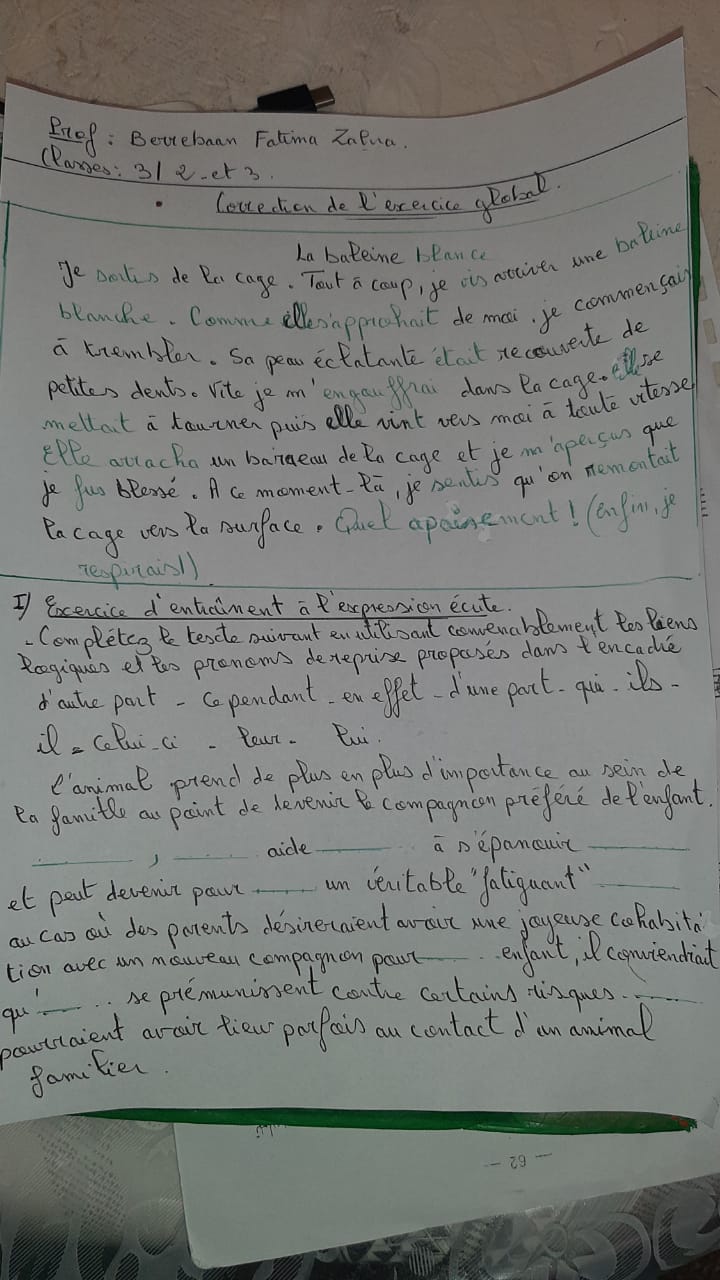 Prof : Berrebaan Fatima Zahra.
Classes : 3/ 2 et 3.
Correction de l'exercice global.
La baleine blance
Je sortis de la cage. Tout à coup, je vis arriver une baleine
blanche. Comme elle s'approchait de moi, je commençais
à trembler. Sa peau éclatante était recouverte de
petites dents. Vite je m'engauffrai dans la cage. elle se
mettait à tourner puis elle vint vers moi à toute vitesse
Elle arracha un barreau de la cage et je m'aperçus que
je fus blessé. A ce moment-là, je sentis qu'on remontait
la cage vers la surface. Quel apaisement ! (enfin, je
respirais !)
I) Exercice d'entraînment à l'expression écute.
- Complétez le texte suivant en utilisant convenablement les liens
logiques et les pronoms de reprise proposés dans l'encadré
d'autre part - Cependant - en effet - d'une part - qui - ils -
il - celui-ci - leur - lui.
l'animal prend de plus en plus d'importance au sein de
la famille au point de devenir le compagnon préféré de l'enfant.
, aide à s'épanouir
et peut devenir pour un véritable "fatiguant"
au cas où des parents désireraient avoir une joyeuse cohabita
tion avec un nouveau compagnon pour enfant, il conviendrait
qu' se prémunissent contre certains risques.
pourraient avoir lieu parfois au contact d'un animal
familier.
- 62 -